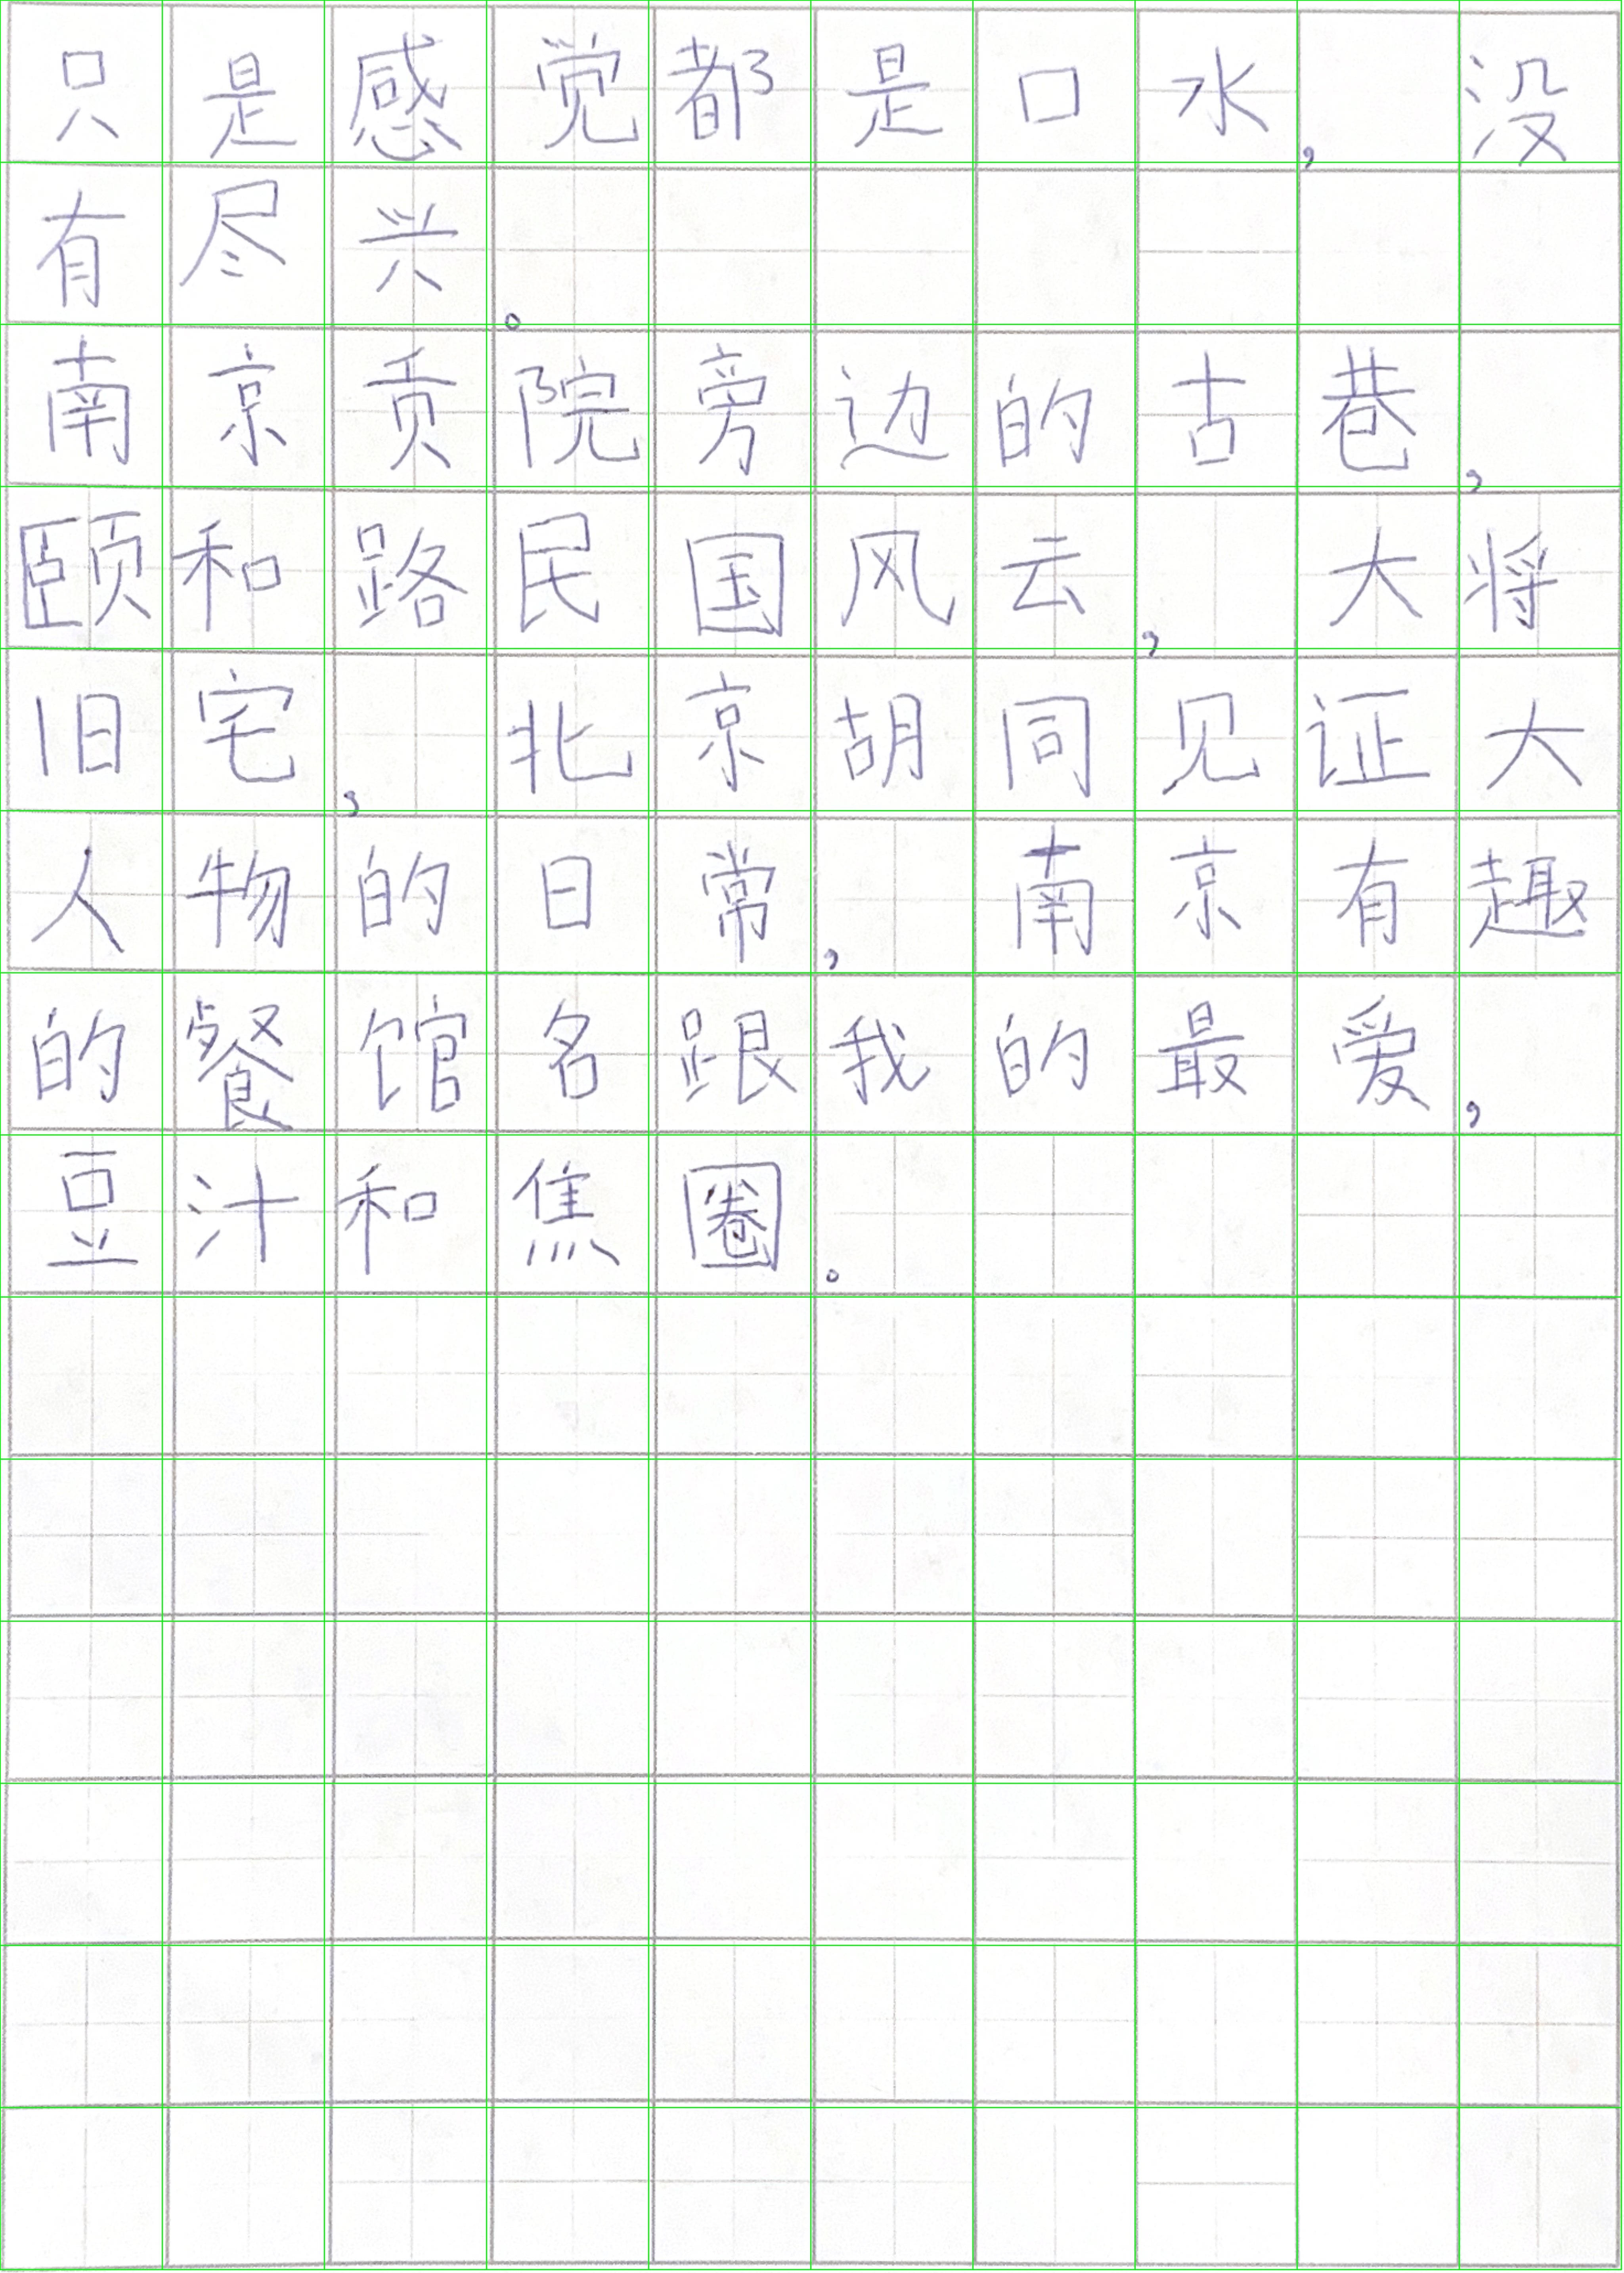 只是感觉都是口水，没
有尽兴。
南京贡院旁边的古巷，
颐和路民国风云，大将
旧宅，北京胡同见证大
人物的日常，南京有趣
的餐馆名跟我的最爱，
豆汁和焦圈。